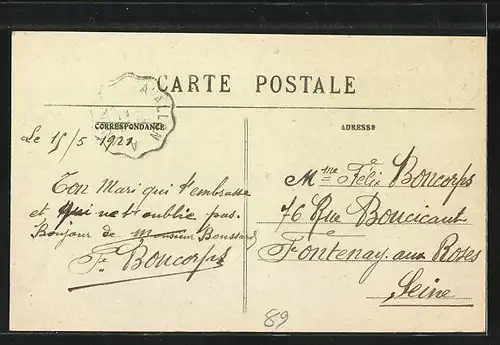 CARTE POSTALE
CORRESPONDANCE
ADRESSE
Le 15/5 1921
Ton Mari qui t'embrasse
et qui net oublie pas.
Bonjour de Monsieur Boussard
Fx Boncorps
Mme Félix Boncorps
76 Rue Boucicaut
Fontenay-aux Roses
Seine
89